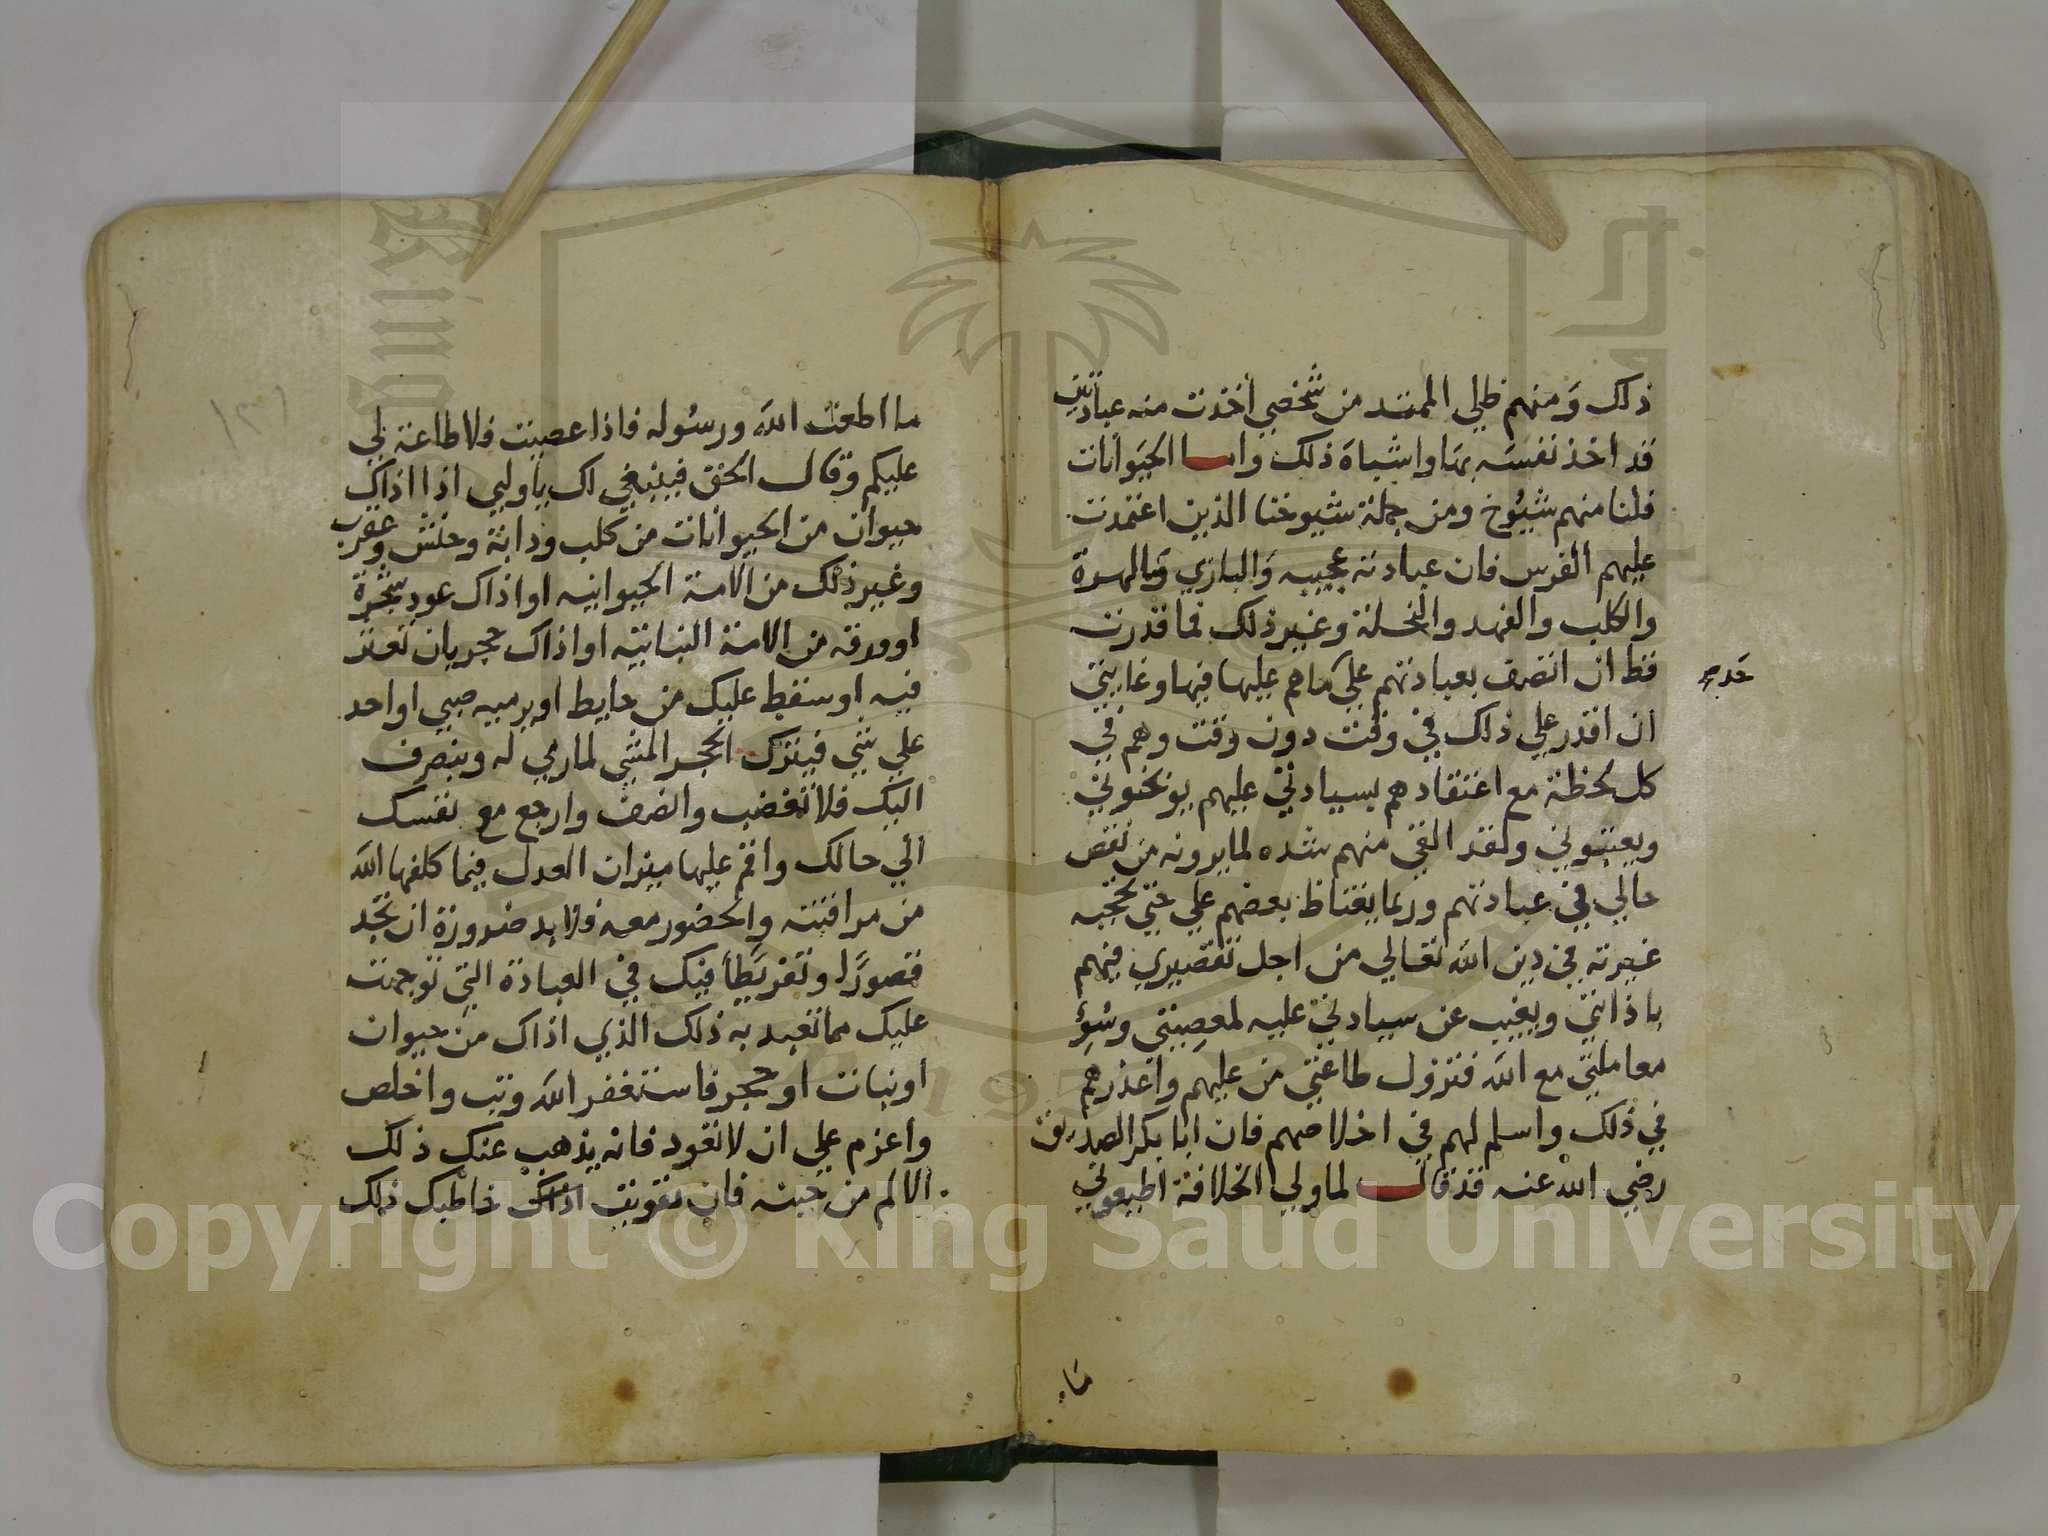 ذلك ومنهم ظلي الممتد من شخصي اخذت منه عبادتين
قد اخذ نفسه بها واشباه ذلك واما الحيوانات
فلنا منهم شيوخ ومن جملة شيوخنا الذين اعتمدت
عليهم الفرس فان عبادته عجيبه والبازي والهرة
والكلب والفهد والنحلة وغير ذلك فما قدرت
قط ان اتصف بعبادتهم على ما هم عليها فيها وغايتي
ان اقدر علي ذلك في وقت دون وقت وهم في
كل لحظة مع اعتقادهم بسيادتي عليهم يوبخوني
ويعتبوني ولقد القي منهم شده لما يرونه من نقص
حالي في عبادتهم وربما يغتاظ بعضهم علي حتي تحجبه
غيرته في دين الله تعالي من اجل تقصيري فيهم
باذايتي ويغيب عن سيادتي عليه لمعصيتي وسوء
معاملتي مع الله فتزول طاعتي من عليهم واعذرهم
في ذلك واسلم لهم في اخلاصهم فان ابا بكر الصديق
رضي الله عنه قد قال لما ولي الخلافة اطيعوني
ما
ما اطعت الله ورسوله فاذا عصيت فلا طاعة لي
عليكم وقال الحق فينبغي لك يا وليي اذا اذاك
حيوان من الحيوانات من كلب ودابة وحنش وعقرب
وغير ذلك من الامة الحيوانيه او اذاك عود شجرة
او ورقه من الامة النباتيه او اذاك حجر بان تعثر
فيه او سقط عليك من حايط او يرميه صبي او احد
علي شي فيترك الحجر المشي لما رمي له وينصرف
اليك فلا تغضب وانصف وارجع مع نفسك
الي حالك واقم عليها ميزان العدل فيما كلفها الله
من مراقبته والحضور معه فلا بد ضرورة ان تجد
قصورا وتفريطا فيك في العبادة التي توجهت
عليك مما تعبد به ذلك الذي اذاك من حيوان
او نبات او حجر فاستغفر الله وتب واخلص
واعزم علي ان لا تعود فانه يذهب عنك ذلك
الالم من حينه فان تقويت خاطبك ذلك
١٢١